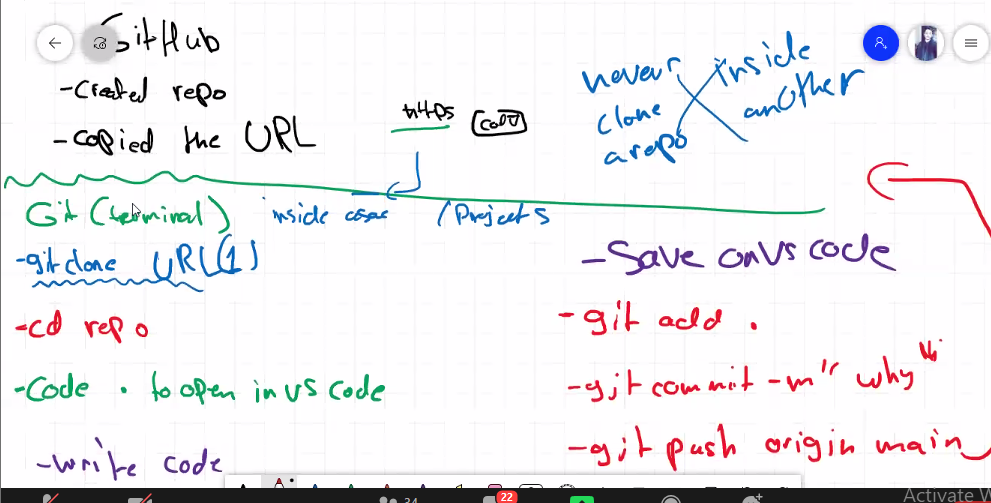 GitHub
-Created repo
-Copied the URL
https
Code
never inside
clone another
a repo
Git (terminal) inside /Projects
-git clone URL(1)
-cd repo
-Code . to open in vs code
-write code
-Save on VS code
-git add .
-git commit -m" why "
-git push origin main
34
22
Activate W